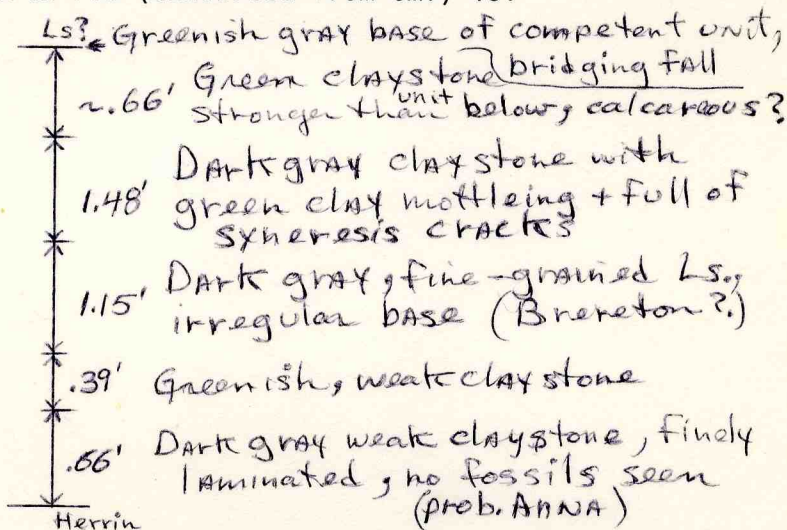 Ls? Greenish gray base of competent unit,
bridging fall
~.66' Green claystone
stronger than unit below, calcareous?
Dark gray claystone with
1.48' green clay mottleing + full of
syneresis cracks
Dark gray, fine-grained Ls.,
1.15' irregular base (Brereton?.)
.39' Greenish, weak claystone
.66' Dark gray weak claystone, finely
laminated, no fossils seen
(prob. Anna)
Herrin